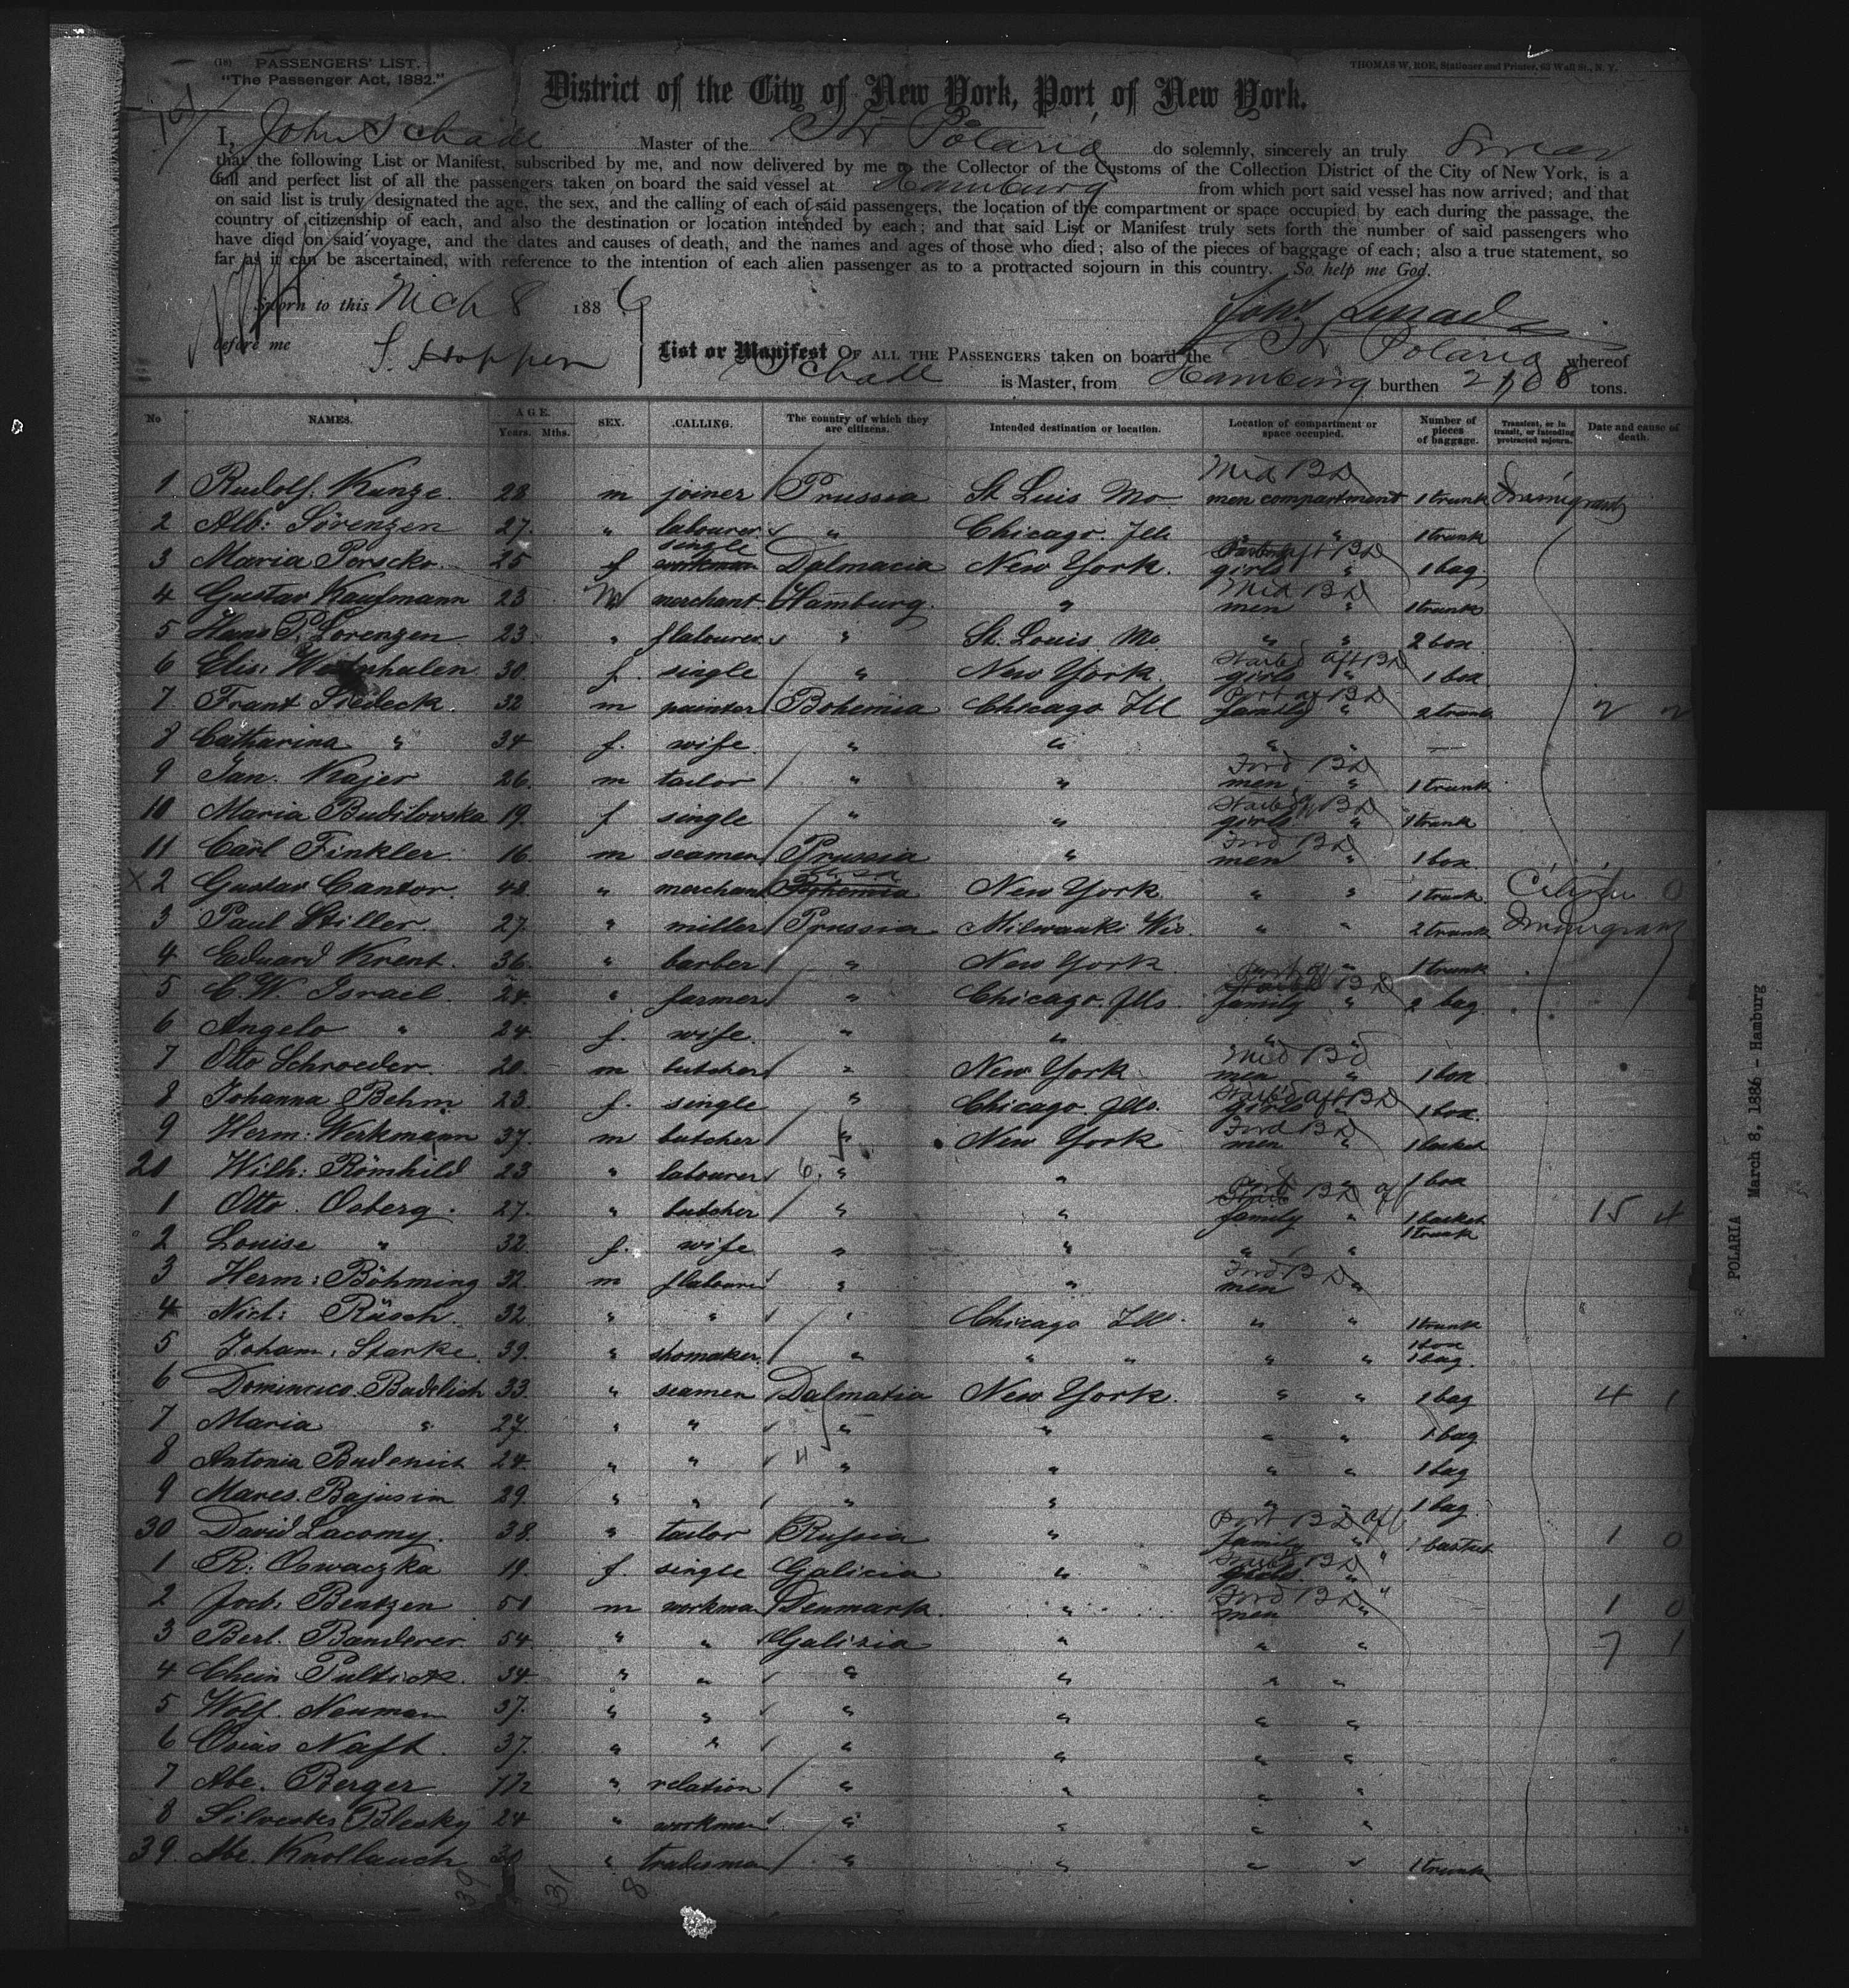 (18) PASSENGERS' LIST.
"The Passenger Act, 1882."
THOMAS W. ROE, Stationer and Printer, 63 Wall St., N. Y.
District of the City of New York, Port of New York.
I, John Schade Master of the Str Polaria do solemnly, sincerely an truly Swear
that the following List or Manifest, subscribed by me, and now delivered by me to the Collector of the Customs of the Collection District of the City of New York, is a
full and perfect list of all the passengers taken on board the said vessel at Hamburg from which port said vessel has now arrived; and that
on said list is truly designated the age, the sex, and the calling of each of said passengers, the location of the compartment or space occupied by each during the passage, the
country of citizenship of each, and also the destination or location intended by each; and that said List or Manifest truly sets forth the number of said passengers who
have died on said voyage, and the dates and causes of death, and the names and ages of those who died; also of the pieces of baggage of each; also a true statement, so
far as it can be ascertained, with reference to the intention of each alien passenger as to a protracted sojourn in this country. So help me God.
Sworn to this Mch 8 1886
before me S. Hoppen
List or Manifest OF ALL THE PASSENGERS taken on board the Str Polaria whereof
Schade is Master, from Hamburg burthen tons.
No NAMES. AGE. Years. Mths. SEX. CALLING. The country of which they are citizens. Intended destination or location. Location of compartment or space occupied. Number of pieces of baggage. Transient, or in transit, or intending protracted sojourn. Date and cause of death.
Mid BD
1 Rudolf Kunze 28 m joiner Prussia St Luis Mo men compartment 1 trunk Immigrant
2 Alb: Sörenzen 27 " labourer " Chicago. Ills " " 1 trunk
single
3 Maria Porscko 25 f workman Dalmacia New York. girls " 1 bag
Mid BD
4 Gustav Kaufmann 23 m merchant Hamburg " men " 1 trunk
5 Hans P. Lorenzen 23 " flabourer " St. Louis. Mo " " 2 box
Starbd aft BD
6 Elis: 30 f. single " New York. girls " 1 box
Port aft BD
7 Frant Siedeck 32 m painter Bohemia Chicago Ill family " 2 trunk 2 2
8 Catharina " 34 f. wife " " " "
Ford BD
9 Jan. Kajer 26 m tailor " " men " 1 trunk
Starbd aft BD
10 Maria Budilovska 19 f single " " girls " 1 trunk
Ford BD
11 Carl Finkler 16 m seamen Prussia " men " 1 box
X 2 Gustav Cantor 48 " merchant Bohemia New York " " 1 trunk Citizen 0
3 Paul Stiller 27 " miller Prussia Milwauki Wis. " " 2 trunk Immigrant
4 Eduard Krent 36 " barber " New York " " 1 trunk
5 C. W. Israel 24 " farmer " Chicago. Ills family " 2 bag
6 Angelo " 24 f. wife " " "
Mid BD
7 Otto Schroeder 20 m butcher " New York men " 1 box
Starbd aft BD
8 Johanna Behm 23 f. single " Chicago. Ills. girls " 1 box
Ford BD
9 Herm: Werkmann 37 m butcher " New York men " 1 basket
20 Wilh: Römhild 23 " labourer 6 " " " 1 box
Port BD aft
1 Otto Osberg 27 " butcher " " family " 1 basket 15 4
1 trunk
2 Louise " 32 f. wife " " " "
Ford BD
3 Herm: Böhming 32 m flabourer " " men "
4 Nicl: Räsch 32 " " " Chicago Ills. " " 1 trunk
1 box
5 Joham. Starke 39 " shomaker " " " " " 1 bag.
6 Dominico Budelich 33 " seamen Dalmatia New York. " " 1 bag 4 1
7 Maria " 27 " " " " " " 1 bag
8 Antonia Budenich 24 " " 4 " " " " 1 bag
9 Mares. Bajusin 29 " " " " " " 1 bag
Port BD aft
30 David Lacomy 38 " tailor Russia " family " 1 basket 1 0
Starbd BD "
1 R: Oswaczka 19 f. single Galicia " girls "
Ford BD "
2 Jacb: Bentzen 51 m workman Denmark " men " 1 0
3 Berl. Banderer 54 " " Galizia " " " 7 1
4 Chein 34 " " " " " "
5 Wolf. Neuman 37 " " " " " "
6 Osias Naft 37 " " " " " "
7 Abe. Berger " relation " " " "
8 Silvester Blesky 24 " workman " " " "
39 Abe. Knollauch " tradesman " " " " 1 trunk
39 31 8
POLARIA March 8, 1886 - Hamburg